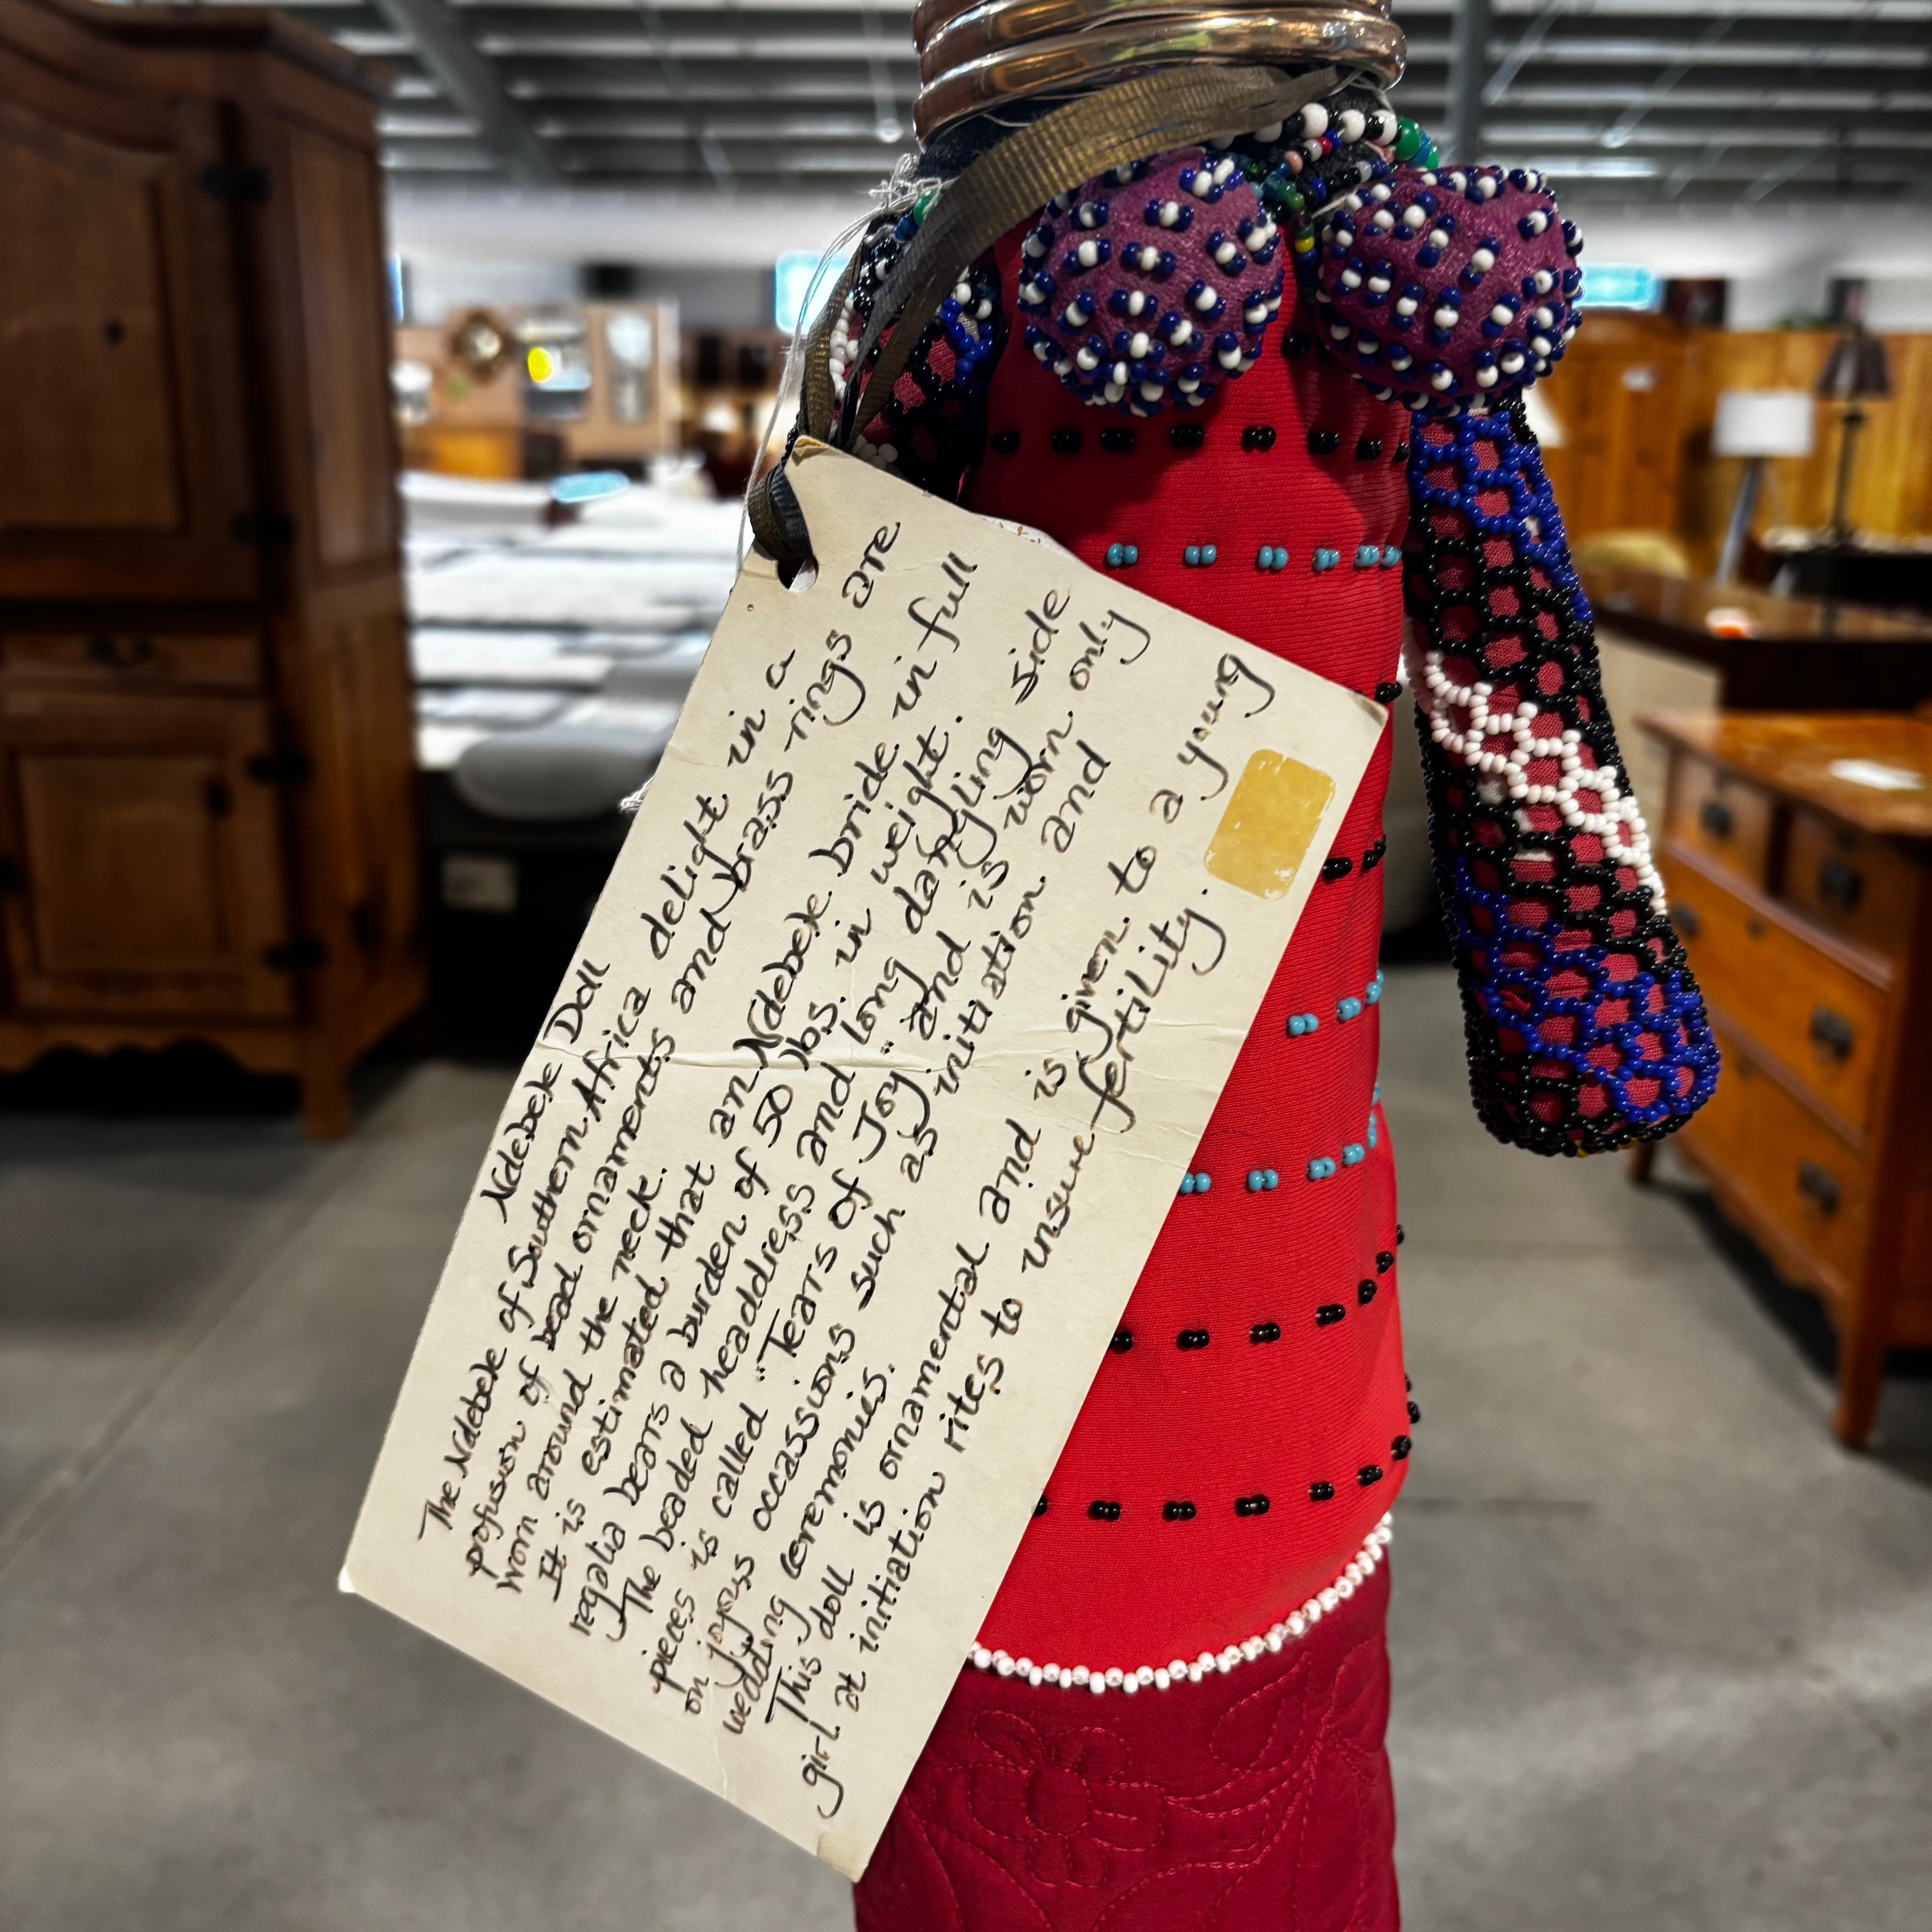 Ndebele Doll
The Ndebele of Southern Africa delight in a
profusion of bead ornaments and brass rings are
worn around the neck.
It is estimated that an Ndebele bride in full
regalia bears a burden of 50 lbs. in weight.
The beaded headdress and long dangling side
pieces is called "Tears of Joy" and is worn only
on joyous occassions such as initiation and
wedding ceremonies.
This doll is ornamental and is given to a young
girl at initiation rites to insure fertility.